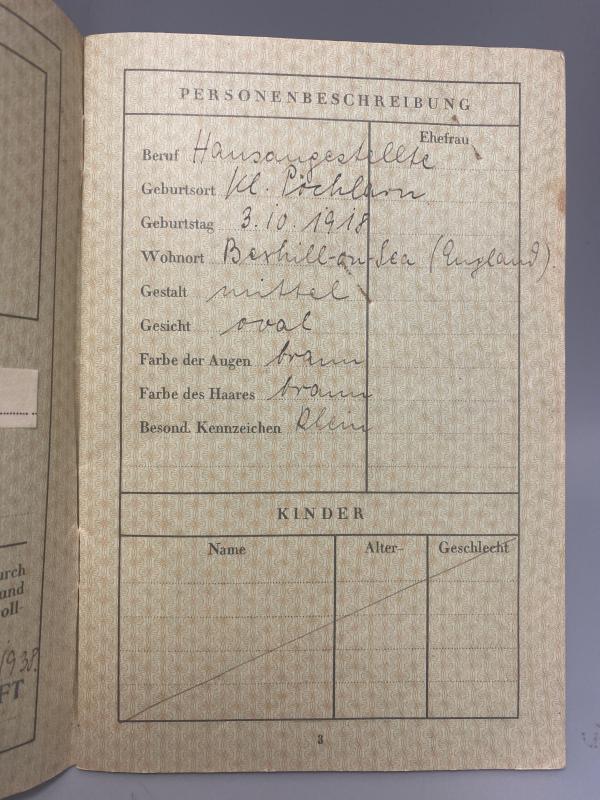 PERSONENBESCHREIBUNG
Ehefrau
Beruf Hausangestellte
Geburtsort Kl. Pöchlarn
Geburtstag 3.10.1918
Wohnort Bexhill-on-Sea (England).
Gestalt mittel
Gesicht oval
Farbe der Augen braun
Farbe des Haares braun
Besond. Kennzeichen
KINDER
Name Alter Geschlecht
3
urch
und
oll-
1938.
FT